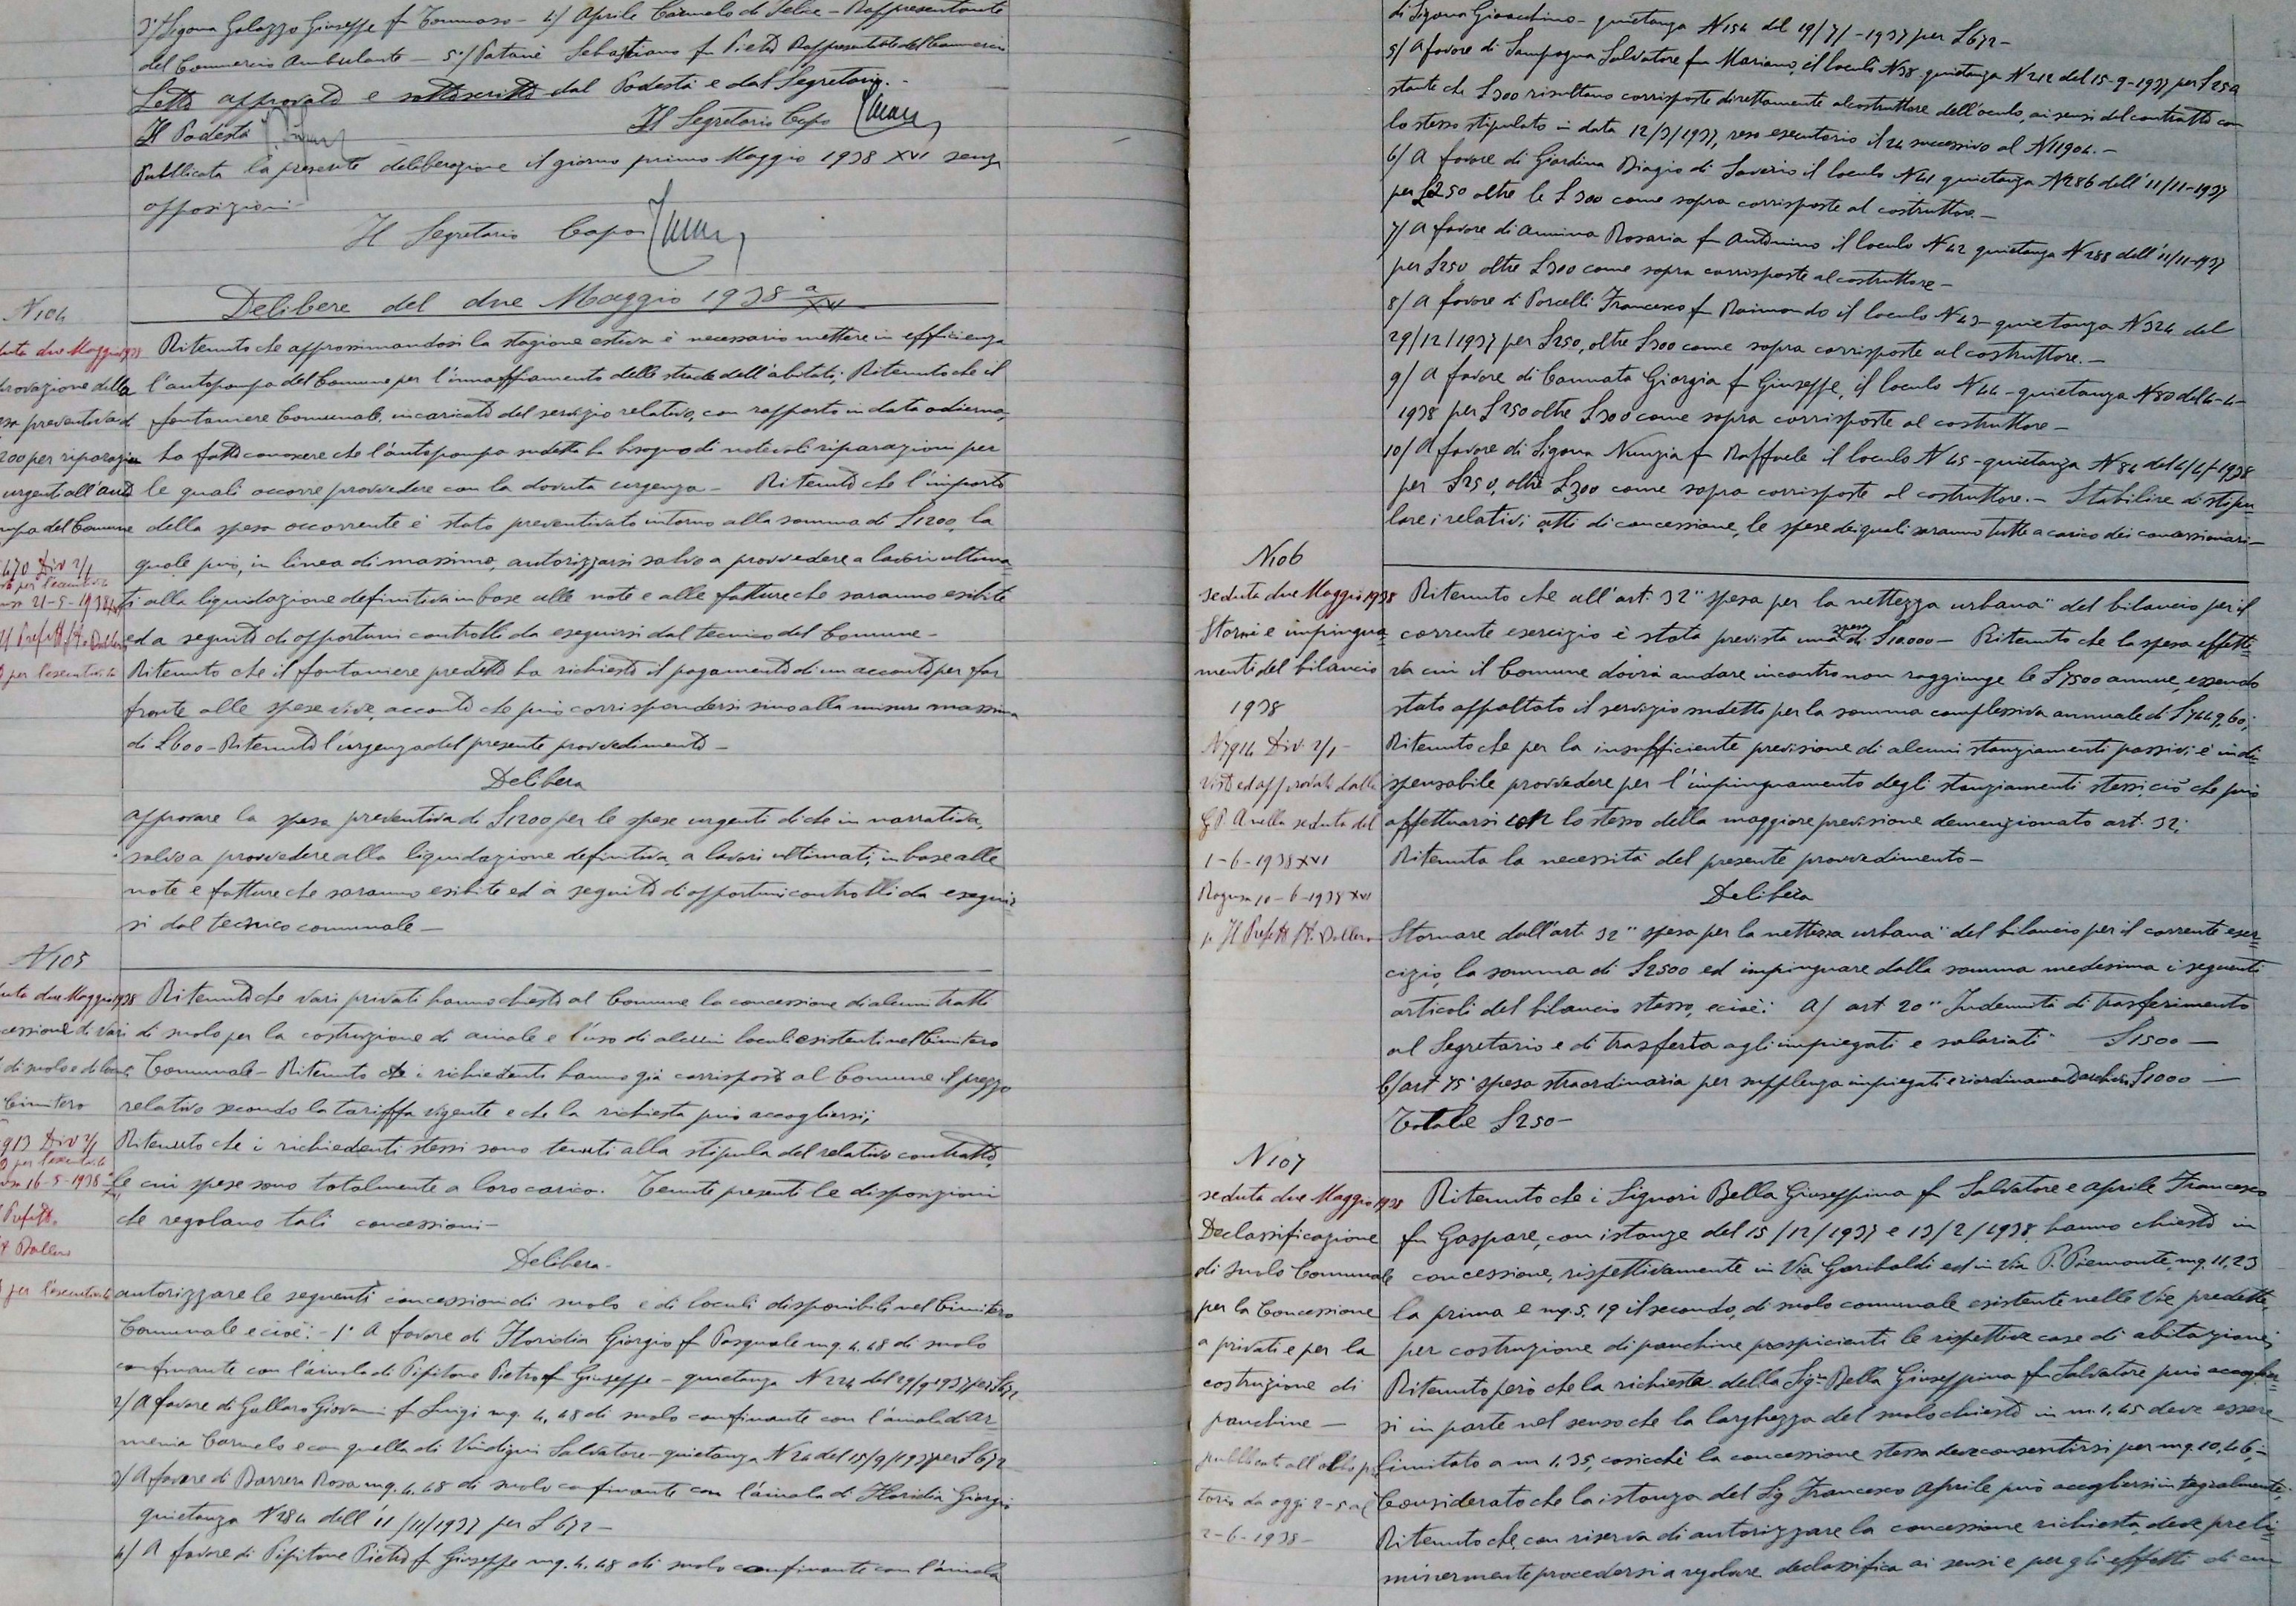 3°/ Sigona Galazzo Giuseppe fu Tommaso - 4/ Aprile Carmelo di Felice - Rappresentante
del Commercio Ambulante - 5°/ Patanè Sebastiano fu Pietro Rappresentante del Commercio
Letto approvato e sottoscritto dal Podestà e dal Segretario.-
Il Podestà
Il Segretario Capo
Pubblicata la presente deliberazione il giorno primo Maggio 1938 XVI senza
opposizioni-
Il Segretario Capo
Delibere del due Maggio 1938 a XVI
N 104
duta due Maggio 1938
provazione della
esa preventiva di
200 per riparazioni
urgenti all'auto
mpa del Comune
470 Div 2/1
per l'esecutività
21-5-1938 XVI
Il Prefetto
per l'esecutività
Ritenuto che approssimandosi la stagione estiva è necessario mettere in efficienza
l'autopompa del Comune per l'innaffiamento delle strade dell'abitato; Ritenuto che il
fontaniere Comunale, incaricato del servizio relativo, con rapporto in data odierna,
ha fatto conoscere che l'autopompa sudetta ha bisogno di notevoli riparazioni per
le quali occorre provvedere con la dovuta urgenza - Ritenuto che l'importo
della spesa occorrente è stato preventivato intorno alla somma di £1200, la
quale può, in linea di massima, autorizzarsi salvo a provvedere a lavori ultima
ti alla liquidazione definitiva in base alle note e alle fatture che saranno esibite
ed a seguito di opportuni controlli da eseguirsi dal tecnico del Comune-
Ritenuto che il fontaniere predetto ha richiesto il pagamento di un acconto per far
fronte alle spese vive, acconto che può corrispondersi sino alla misura massima
di £600 - Ritenuto l'urgenza del presente provvedimento -
Delibera
approvare la spesa preventiva di £1200 per le spese urgenti di che in narrativa,
salvo a provvedere alla liquidazione definitiva, a lavori ultimati, in base alle
note e fatture che saranno esibite ed a seguito di opportuni controlli da eseguir=
si dal tecnico comunale-
N 105
duta due Maggio 1938
cessione di vari
di suolo e di loculi
Cimitero
913 Div 2/1
per l'esecutività
16-5-1938
Prefetto
per l'esecutività
Ritenuto che vari privati hanno chiesto al Comune la concessione di alcuni tratti
di suolo per la costruzione di aiuole e l'uso di alcuni loculi esistenti nel Cimitero
Comunale - Ritenuto che i richiedenti hanno già corrisposto al Comune il prezzo
relativo secondo la tariffa vigente e che la richiesta può accogliersi;
Ritenuto che i richiedenti stessi sono tenuti alla stipula del relativo contratto,
le cui spese sono totalmente a loro carico. Tenute presenti le disposizioni
che regolano tali concessioni-
Delibera-
autorizzare le seguenti concessioni di suolo e di loculi disponibili nel Cimitero
Comunale e cioè: - 1° A favore di Floridia Giorgio fu Pasquale mq. 4.48 di suolo
confinante con l'aiuola di Pipitone Pietro fu Giuseppe - quietanza N 224 del 29/9 1937 per £672-
2/ A favore di Gallaro Giovanni fu Luigi mq. 4.48 di suolo confinante con l'aiuola di Ar
menia Carmelo e con quella di Vindigni Salvatore - quietanza N 24 del 15/9/1937 per £672
3/ A favore di Barrera Rosa mq. 4.48 di suolo confinante con l'aiuola di Floridia Giorgio
quietanza N 284 dell'11/11/1937 per £672 -
4/ A favore di Pipitone Pietro fu Giuseppe mq. 4.48 di suolo confinante con l'aiuola
di Sigona Gioacchino - quietanza N 154 del 19/7/-1937 per £672-
5/ A favore di Sampugna Salvatore fu Mariano, il loculo N 38 quietanza N 212 del 15-9-1937 per £250
stante che £300 risultano corrisposte direttamente al costruttore dell'oculo, ai sensi del contratto con
lo stesso stipulato in data 12/3/1937, reso esecutorio il 24 successivo al N 11904.-
6/ A favore di Giardina Biagio di Saverio il loculo N 41 quietanza N 286 dell'11/11-1937
per £250 oltre le £300 come sopra corrisposte al costruttore-
7/ A favore di Annina Rosaria fu Antonino il loculo N 42 quietanza N 288 dell'11/11-1937
per £250 oltre £300 come sopra corrisposte al costruttore-
8/ A favore di Porcelli Francesco fu Raimondo il loculo N 43 - quietanza N 324 del
29/12/1937 per £250, oltre £300 come sopra corrisposte al costruttore.-
9/ A favore di Cannata Giorgia fu Giuseppe, il loculo N 44 - quietanza N 80 del 4-4-
1938 per £250 oltre £300 come sopra corrisposte al costruttore-
10/ A favore di Sigona Nunzia fu Raffaele il loculo N 45 - quietanza N 84 del 4/4/-1938
per £250, oltre £300 come sopra corrisposte al costruttore.- Stabilire di stipu
lare i relativi atti di concessione, le spese dei quali saranno tutte a carico dei concessionari-
N 106
seduta due Maggio 1938
Storni e impingua=
menti del bilancio
1938
N 7914 Div. 2/1-
Visto ed approvato dalla
G.P.A nella seduta del
1-6-1938 XVI
Ragusa 10-6-1938 XVI
p. Il Prefetto
Ritenuto che all'art. 32 "spesa per la nettezza urbana" del bilancio per il
corrente esercizio è stata prevista una spesa di £10000 - Ritenuto che la spesa effetti=
va cui il Comune dovrà andare incontro non raggiunge le £7500 annue, essendo
stato appaltato il servizio sudetto per la somma complessiva annuale di £7449,60;
Ritenuto che per la insufficiente previsione di alcuni stanziamenti passivi è indi=
spensabile provvedere per l'impinguamento degli stanziamenti stessi, ciò che può
effettuarsi con lo stesso della maggiore previsione demenzionato art. 32;
Ritenuta la necessità del presente provvedimento-
Delibera
Stornare dall'art. 32 "spesa per la nettezza urbana" del bilancio per il corrente eser=
cizio, la somma di £2500 ed impinguare dalla somma medesima i seguenti
articoli del bilancio stesso, e cioè: A/ art 20 "Indennità di trasferimento
al Segretario e di trasferta agli impiegati e salariati" £1500 -
b/ art 75 "spesa straordinaria per supplenza impiegati e riordinamento archivio £1000 -
Totale £250-
N 107
seduta due Maggio 1938
Declassificazione
di suolo Comunale
per la Concessione
a privati e per la
costruzione di
panchine -
pubblicata all'albo pre
torio da oggi 2-5 al
2-6-1938-
Ritenuto che i Signori Bella Giuseppina fu Salvatore e Aprile Francesco
fu Gaspare, con istanze del 15/12/1937 e 13/2/1938, hanno chiesto in
concessione, rispettivamente in Via Garibaldi ed in Via P. Piemonte, mq. 11,23
la prima e mq. 5,19 il secondo, di suolo comunale esistente nelle Vie predette,
per costruzione di panchine prospicienti le rispettive case di abitazione;
Ritenuto però che la richiesta della Sig.ra Bella Giuseppina fu Salvatore può accoglier=
si in parte nel senso che la larghezza del suolo chiesto in m. 1,45 deve essere
limitato a m 1,35, cosicchè la concessione stessa deve consentirsi per mq. 10,46;-
Considerato che la istanza del Sig Francesco Aprile può accogliersi integralmente;
Ritenuto che, con riserva di autorizzare la concessione richiesta, deve preli=
minermente procedersi a regolare declassifica ai sensi e per gli effetti di cui